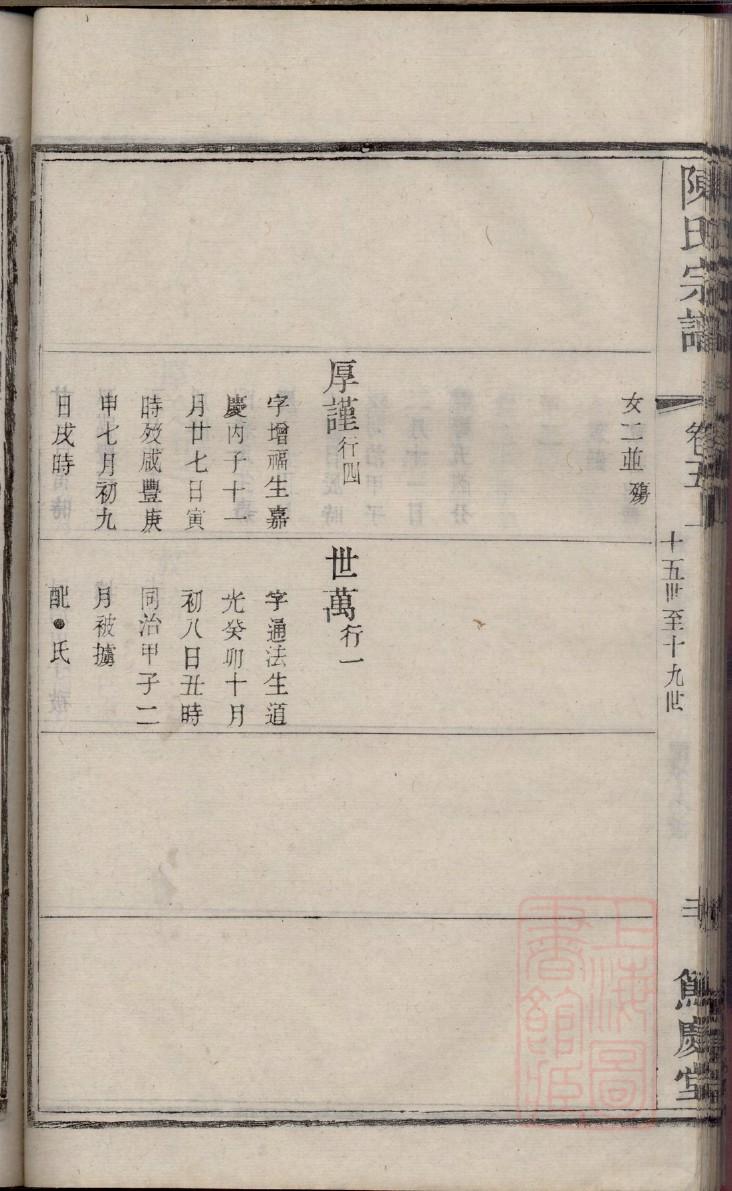 陳氏宗譜
卷五上
十五世至十九世
慶堂
女二並殤
厚謹行四
字增福生嘉
慶丙子十一
月廿七日寅
時歿咸豐庚
申七月初九
日戌時
世萬行一
字通法生道
光癸卯十月
初八日丑時
同治甲子二
月被擄
配●氏
上海圖
書館藏